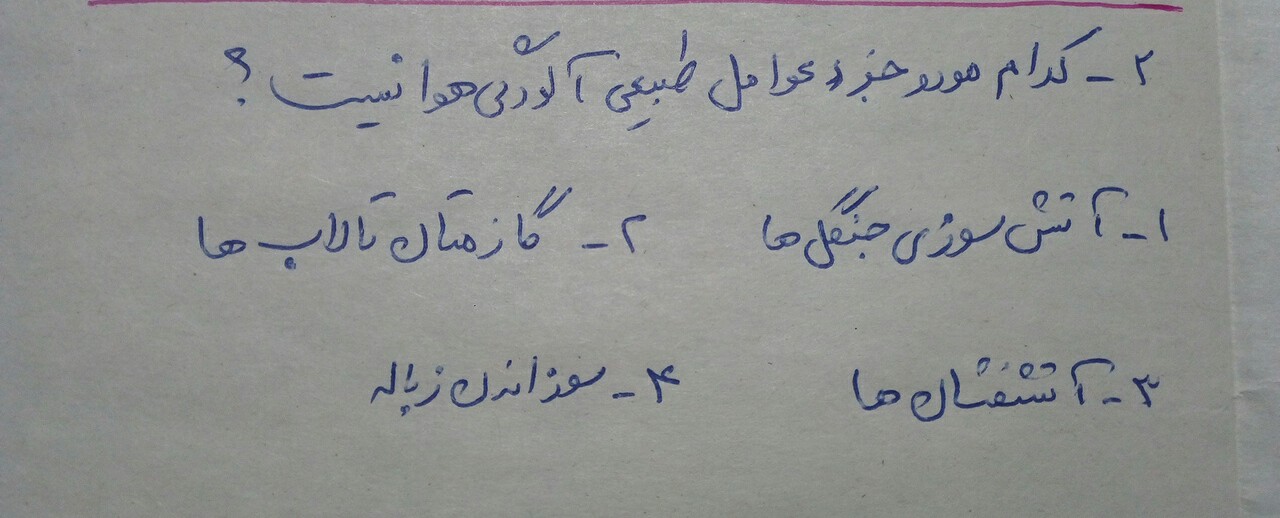 ۲- کدام مورد جزء عوامل طبیعی آلودگی هوا نیست ؟
۱- آتش سوزی جنگل ها ۲- گاز متان تالاب ها
۳- آتشفشان ها ۴- سوزاندن زباله